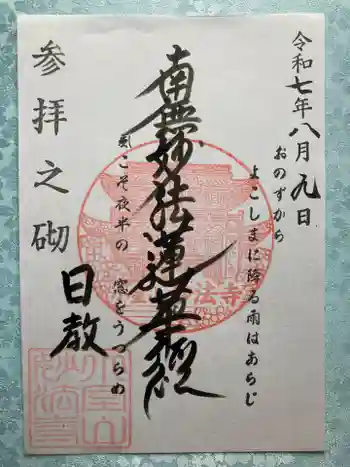 令和七年八月九日
おのずから
よこしまに降る雨はあらじ
南無妙法蓮華経
風こそ夜半の窓をうつらめ
参拝之砌
日教
法寺